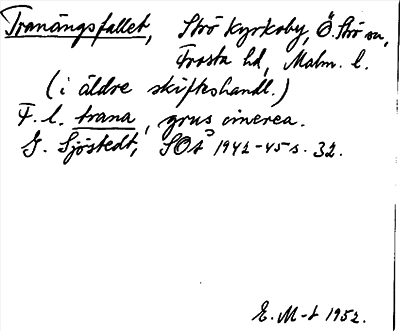 Tranängsfallet, Strö kyrkoby, Ö. Strö sn,
Frosta hd, Malm. l.
(i äldre skifteshandl.)
F. l. trana, grus cinerea.
G. Sjöstedt, SOÅ 1942-45 s. 32.
E. M-t 1952.